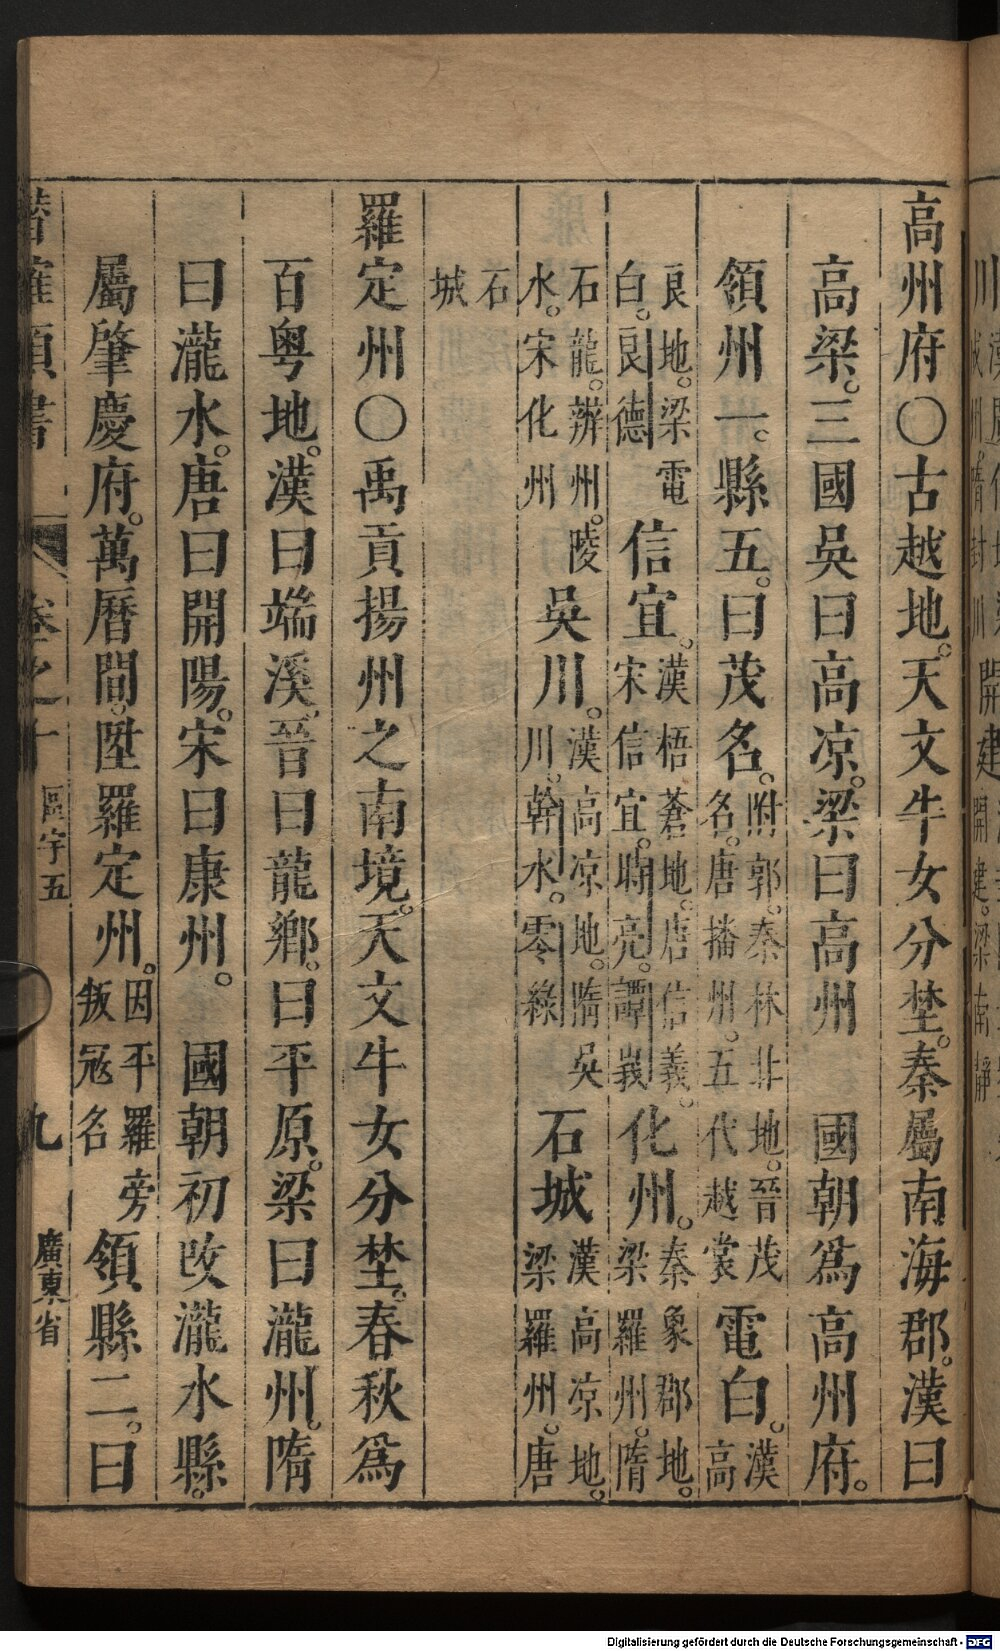 高州府〇古越地。天文牛女分埜。秦屬南海郡。漢曰
高梁。三國吳曰高凉。梁曰高州　國朝爲高州府。
領州一。縣五。曰茂名。附郭。秦林北地。晉茂名。唐播州。五代越裳電白。漢高
良地。梁電白。良德信宜。漢梧蒼地。唐信義。宋信宜。時亮。譚峩化州。秦象郡地。梁羅州。隋
石龍。辨州。陵水。宋化州吳川。漢高凉地。隋吳川。幹水。零綠石城漢高凉地。梁羅州。唐
石城
羅定州〇禹貢揚州之南境。天文牛女分埜。春秋爲
百粤地。漢曰端溪。晉曰龍鄉。曰平原。梁曰瀧州。隋
曰瀧水。唐曰開陽。宋曰康州。　國朝初改瀧水縣。
屬肇慶府。萬曆間。陞羅定州。因平羅旁叛冦名領縣二。曰
卷之十　區宇五　九　廣東省
Digitalisierung gefördert durch die Deutsche Forschungsgemeinschaft - DFG